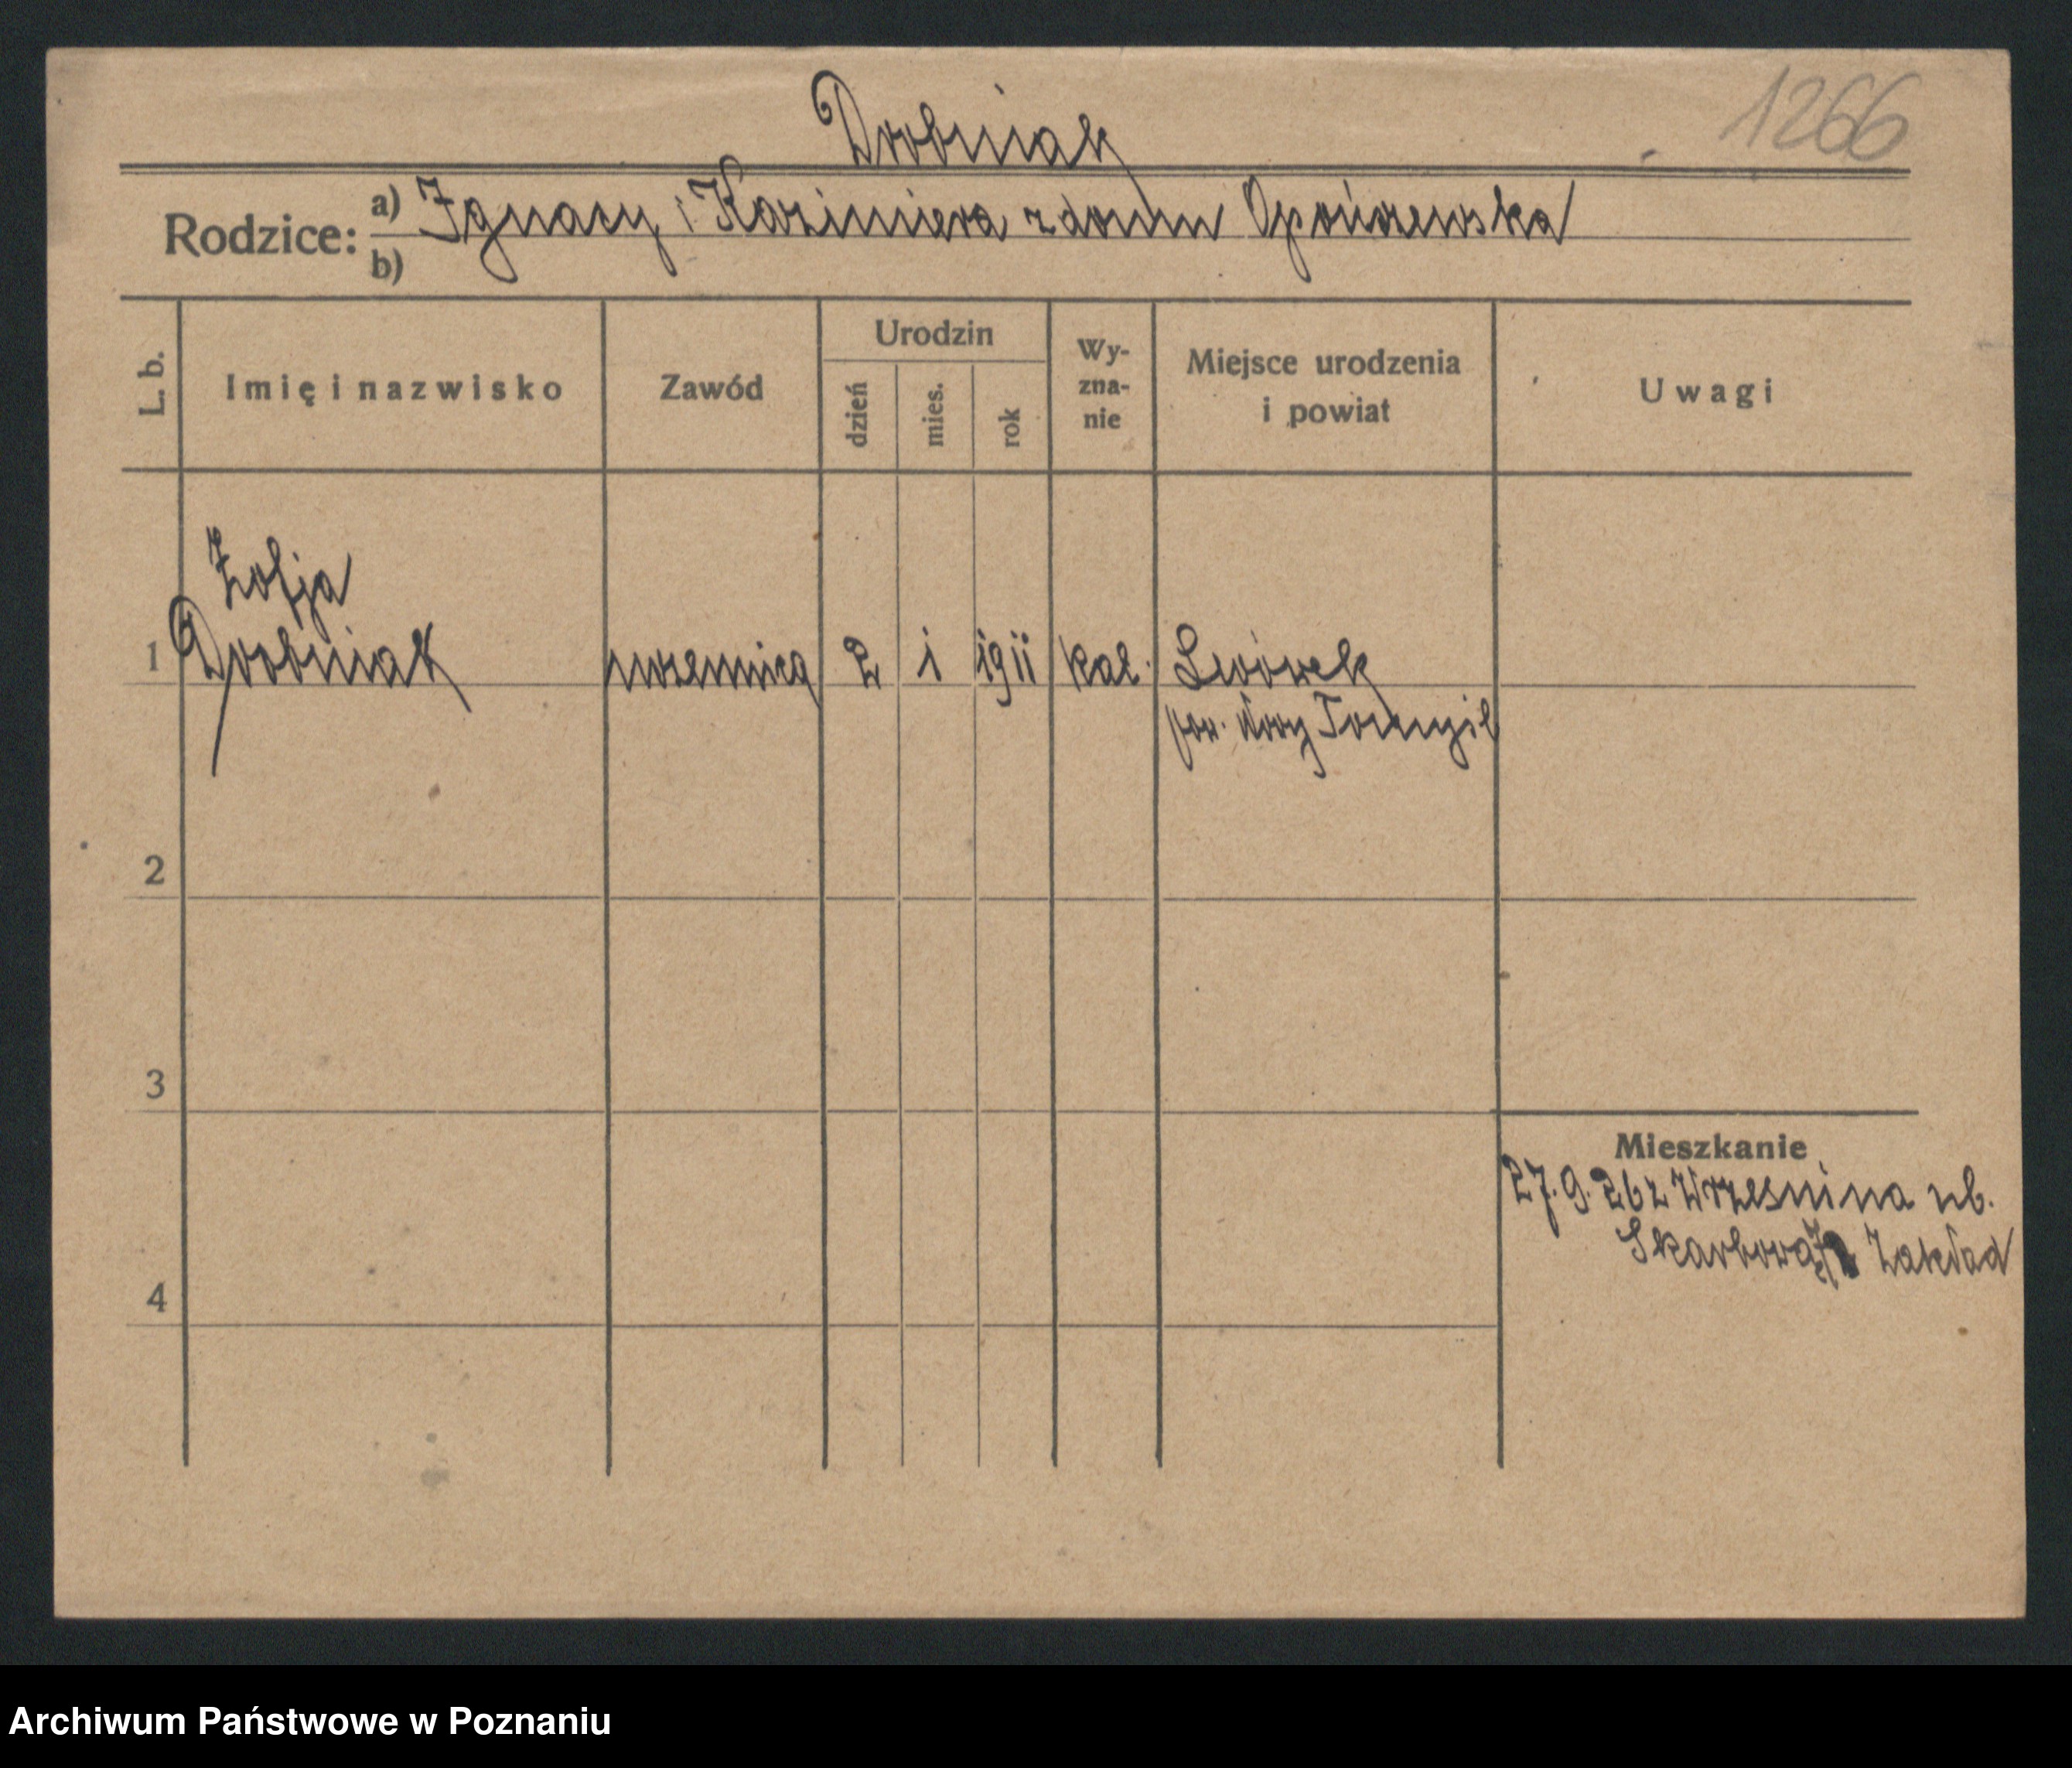 Drobniak
1266
Rodzice: a) Ignacy i Kazimiera z domu Opończewska
b)
L. b. Imię i nazwisko Zawód Urodzin dzień mies. rok Wyznanie Miejsce urodzenia i powiat Uwagi
Zofja
1 Drobniak uczennica 2 1 1911 kat. Lwówek
pow. Nowy Tomyśl
2
3
Mieszkanie
27. 9. 26 z Wrześni na ul.
Skarbowa Zakład
4
Archiwum Państwowe w Poznaniu